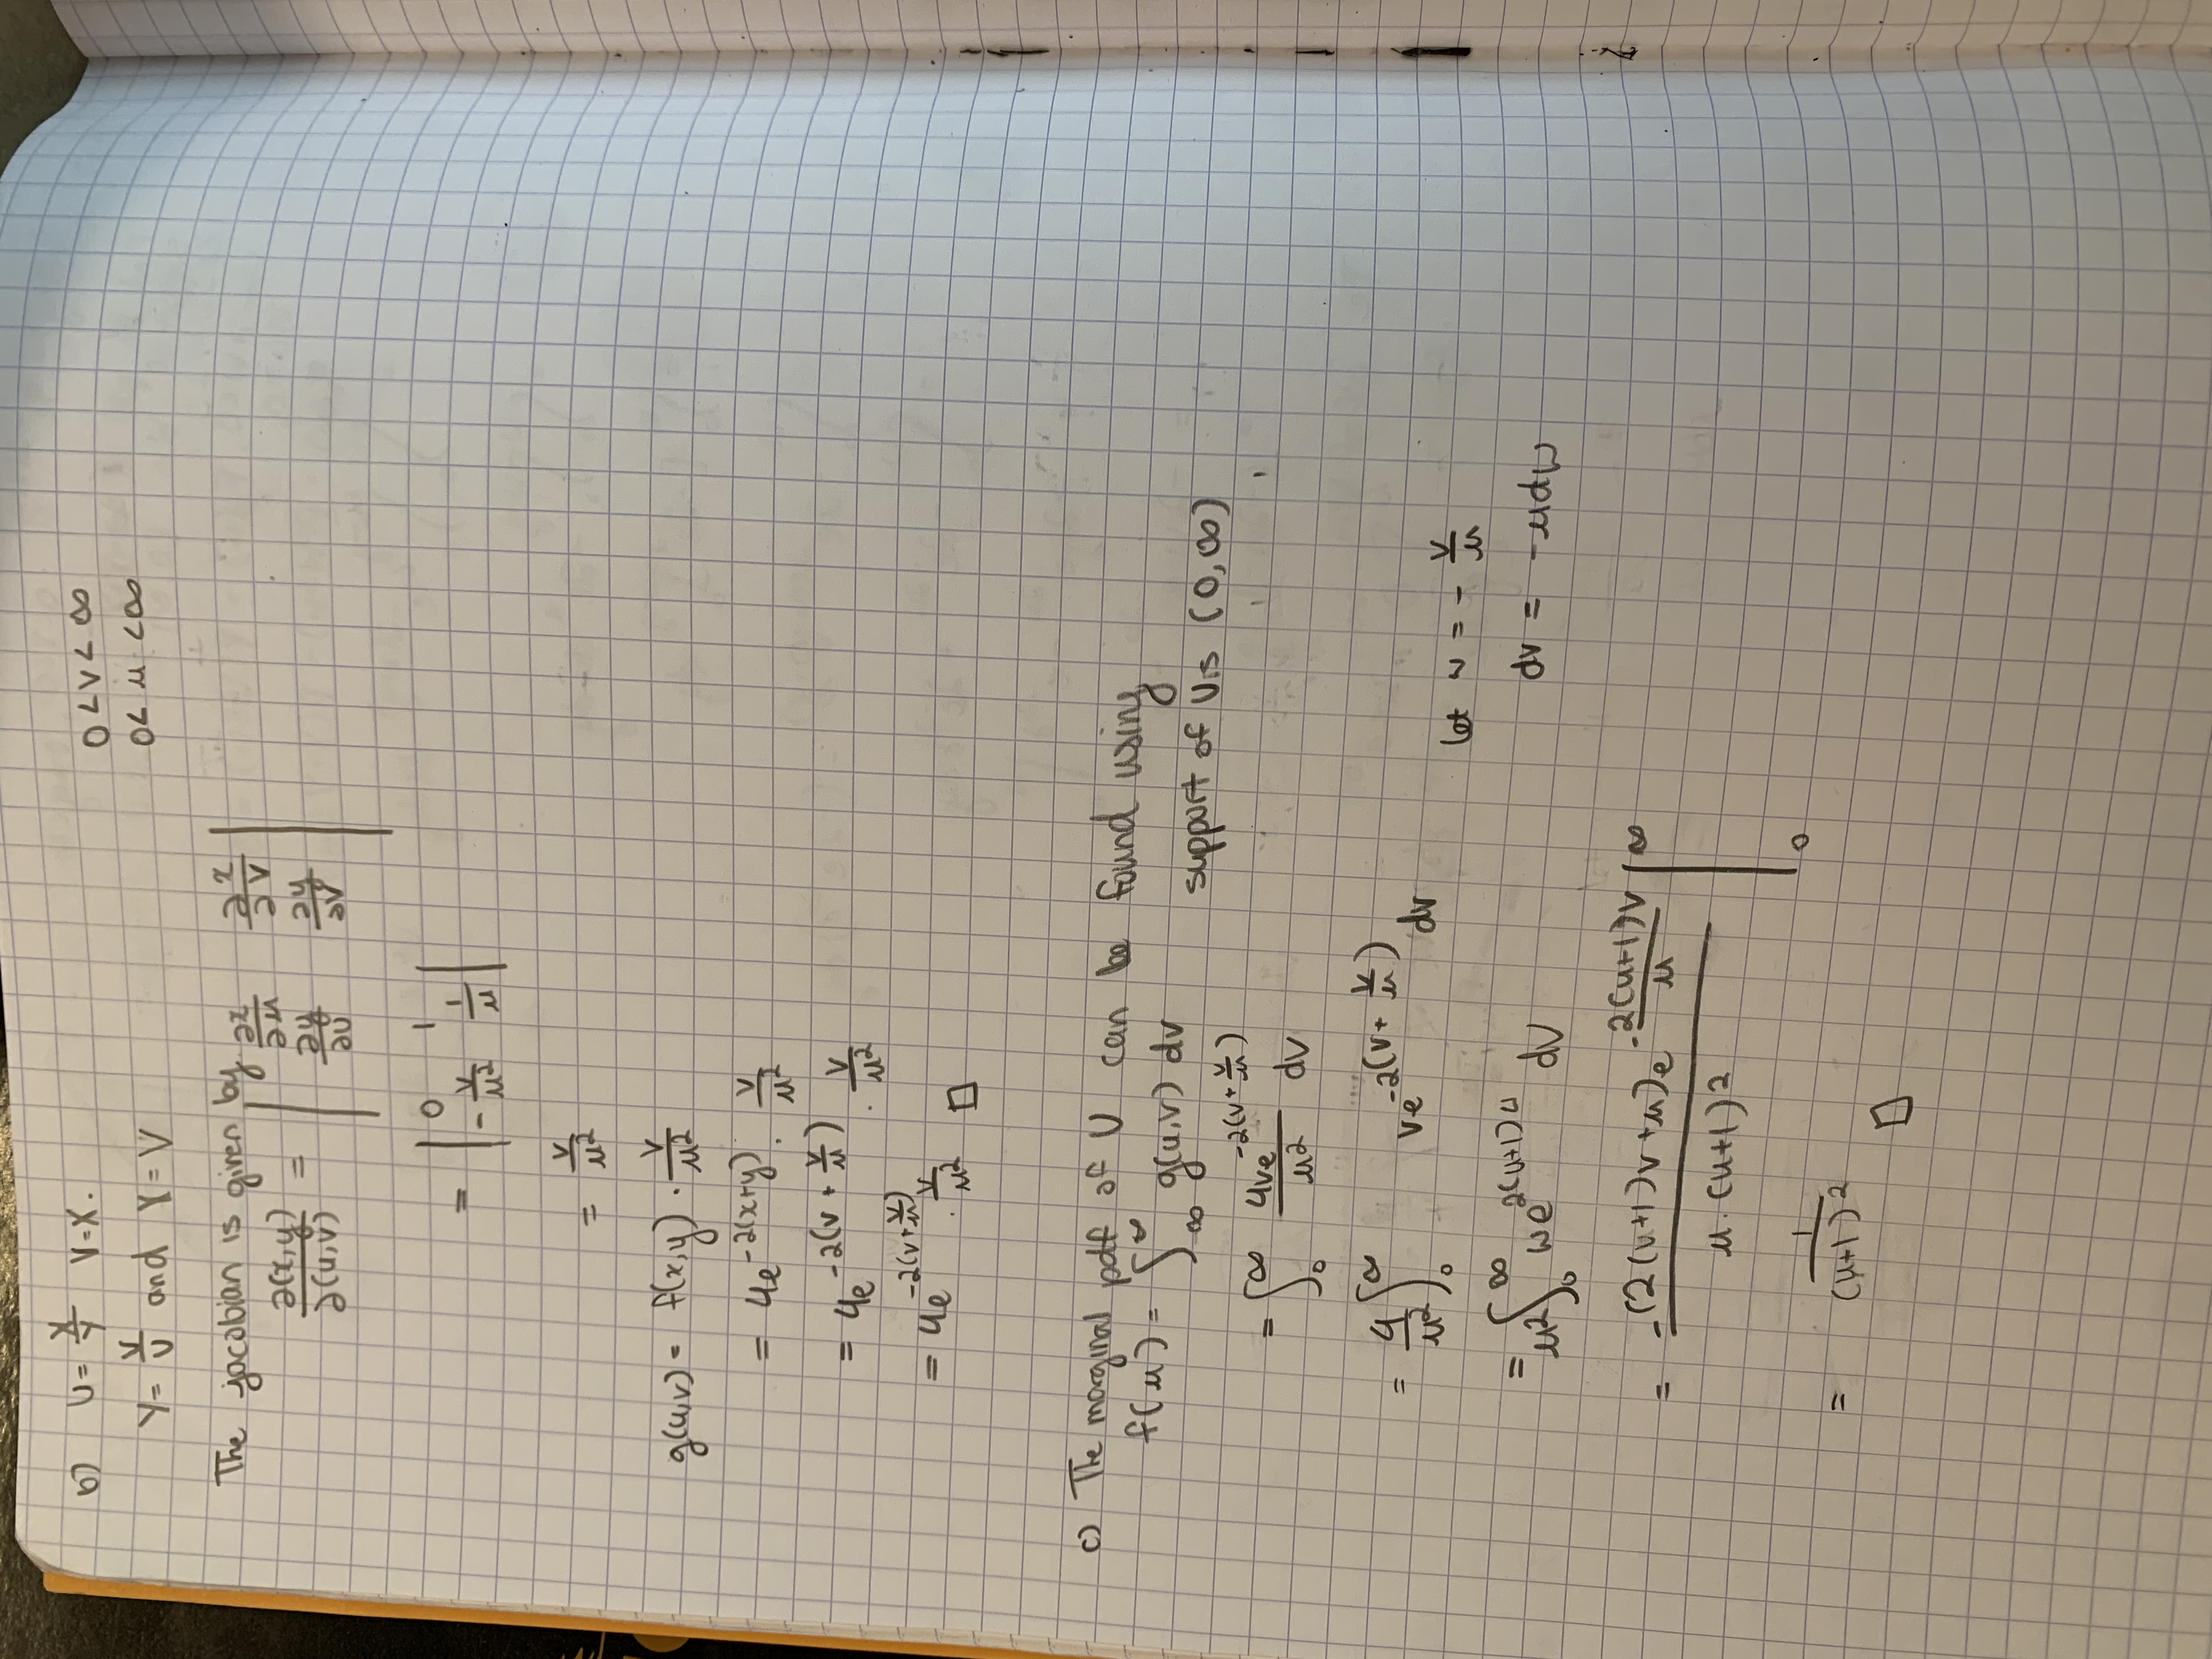 b) U = X/Y V = X.
0 < v < ∞
Y = V/U and X = V
0 < u < ∞
The jacobian is given by
∂(x,y)/∂(u,v) = | ∂x/∂u ∂x/∂v ; ∂y/∂u ∂y/∂v |
= | 0 1 ; -v/u² 1/u |
= v/u²
g(u,v) = f(x,y) · v/u²
= 4e^{-2(x+y)} · v/u²
= 4e^{-2(v + v/u)} · v/u²
= 4e^{-2(v+v/u)} · v/u² □
c) The marginal pdf of U can be found using
f(u) = ∫_{∞}^{∞} g(u,v) dv
support of U is (0,∞)
= ∫_0^∞ 4ve^{-2(v+v/u)}/u² dv
= 4/u² ∫_0^∞ ve^{-2(v + v/u)} dv
let w = - v/u
= u² ∫_0^∞ we^{2(u+1)u} dv
dv = -udw
= -(2(u+1)v+u)e^{-2(u+1)v/u} / u·(u+1)² |_0^∞
= 1/(u+1)²
□